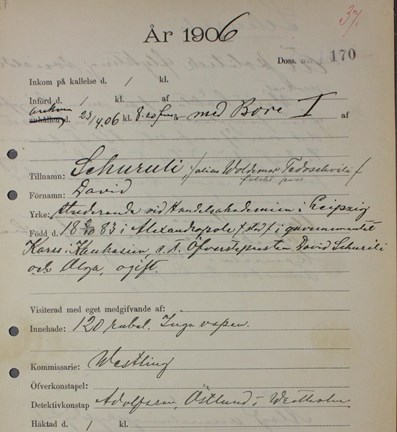 37.
År 1906
Doss. 170
Inkom på kallelse d. / kl.
Införd d. / kl. af
Ankom 23/4 06 kl. 8.20 f.m. med Bore I af
Tillnamn: Schuruli /alias Woldemar Tedoschvili/
falskt pass
Förnamn: David
Yrke: Studerande vid Handelsakademien i Leipzig
Född d. 18 83 i Alexandropole /stad/ i guvernementet
Kars i Kaukasien s. t. Öfversteprästen David Schuruli
och Olga, ogift.
Visiterad med eget medgifvande af:
Innehade: 120 rubel. Inga vapen.
Kommissarie: Westling
Öfverkonstapel:
Detektivkonstap Adolfsson, Östlund o Westholm
Häktad d. / kl.